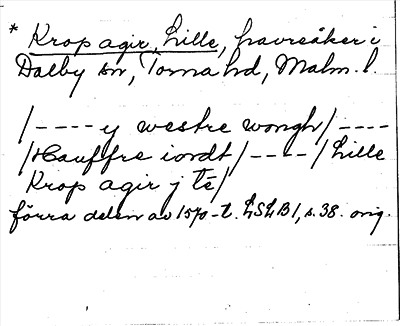 * Krop agir, Lille, havreåker i
Dalby sn, Torna hd, Malm. l.
/---- y westre wongh/----
/Hauffre iordt/----/Lille
Krop agir j tē/
förra delen av 1570-t. LSLB1, s. 38. orig.